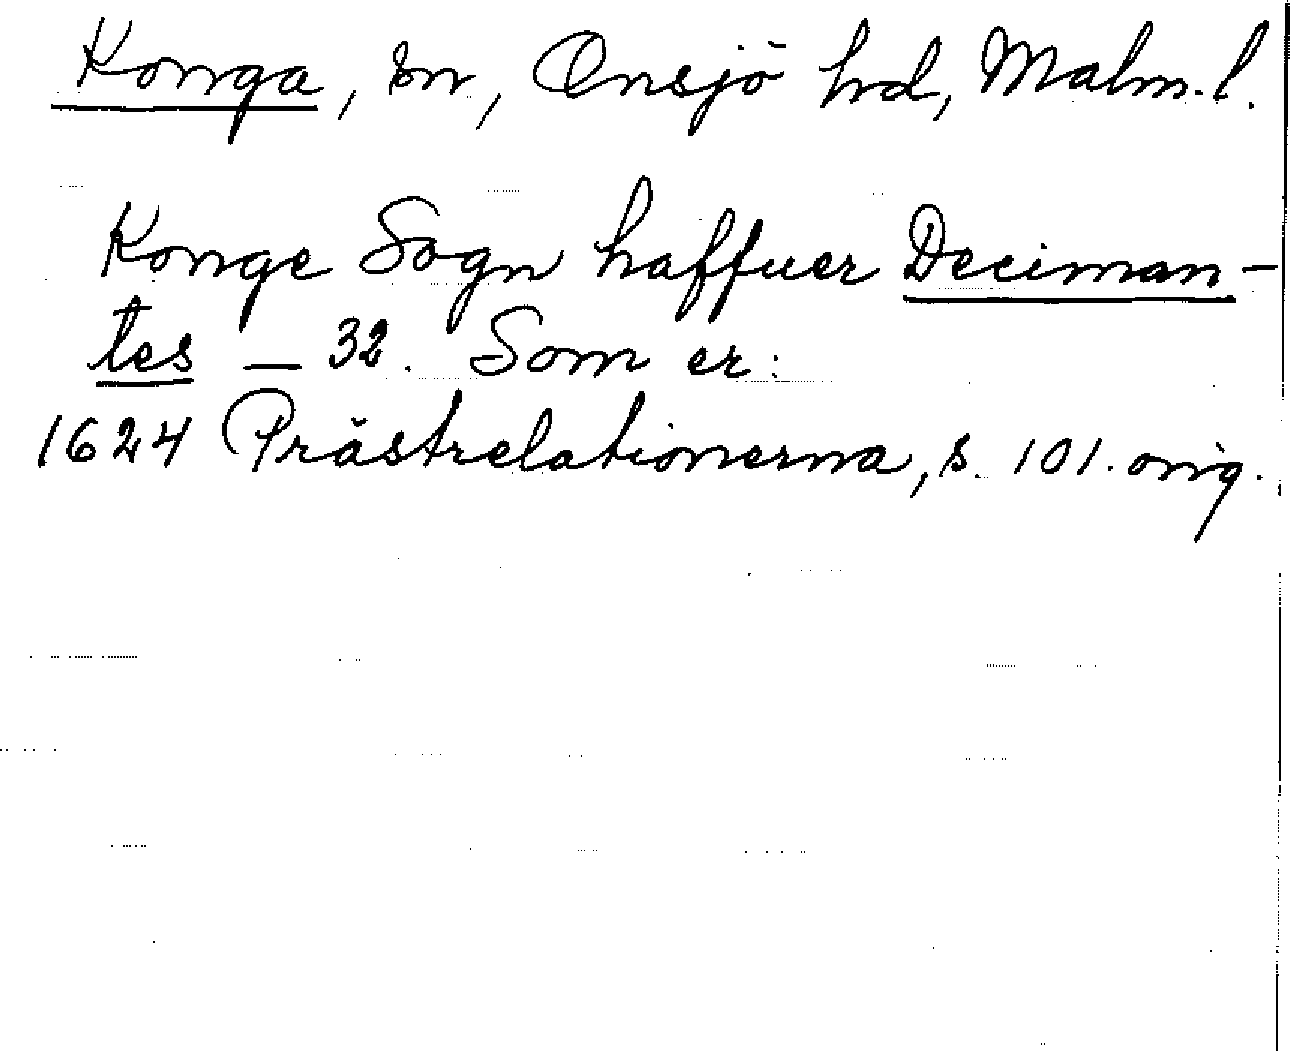 Konga, sn, Onsjö hd, Malm. l.
Konge Sogn haffuer Deciman-
tes — 32. Som er:
1624 Prästrelationerna, s. 101. orig.